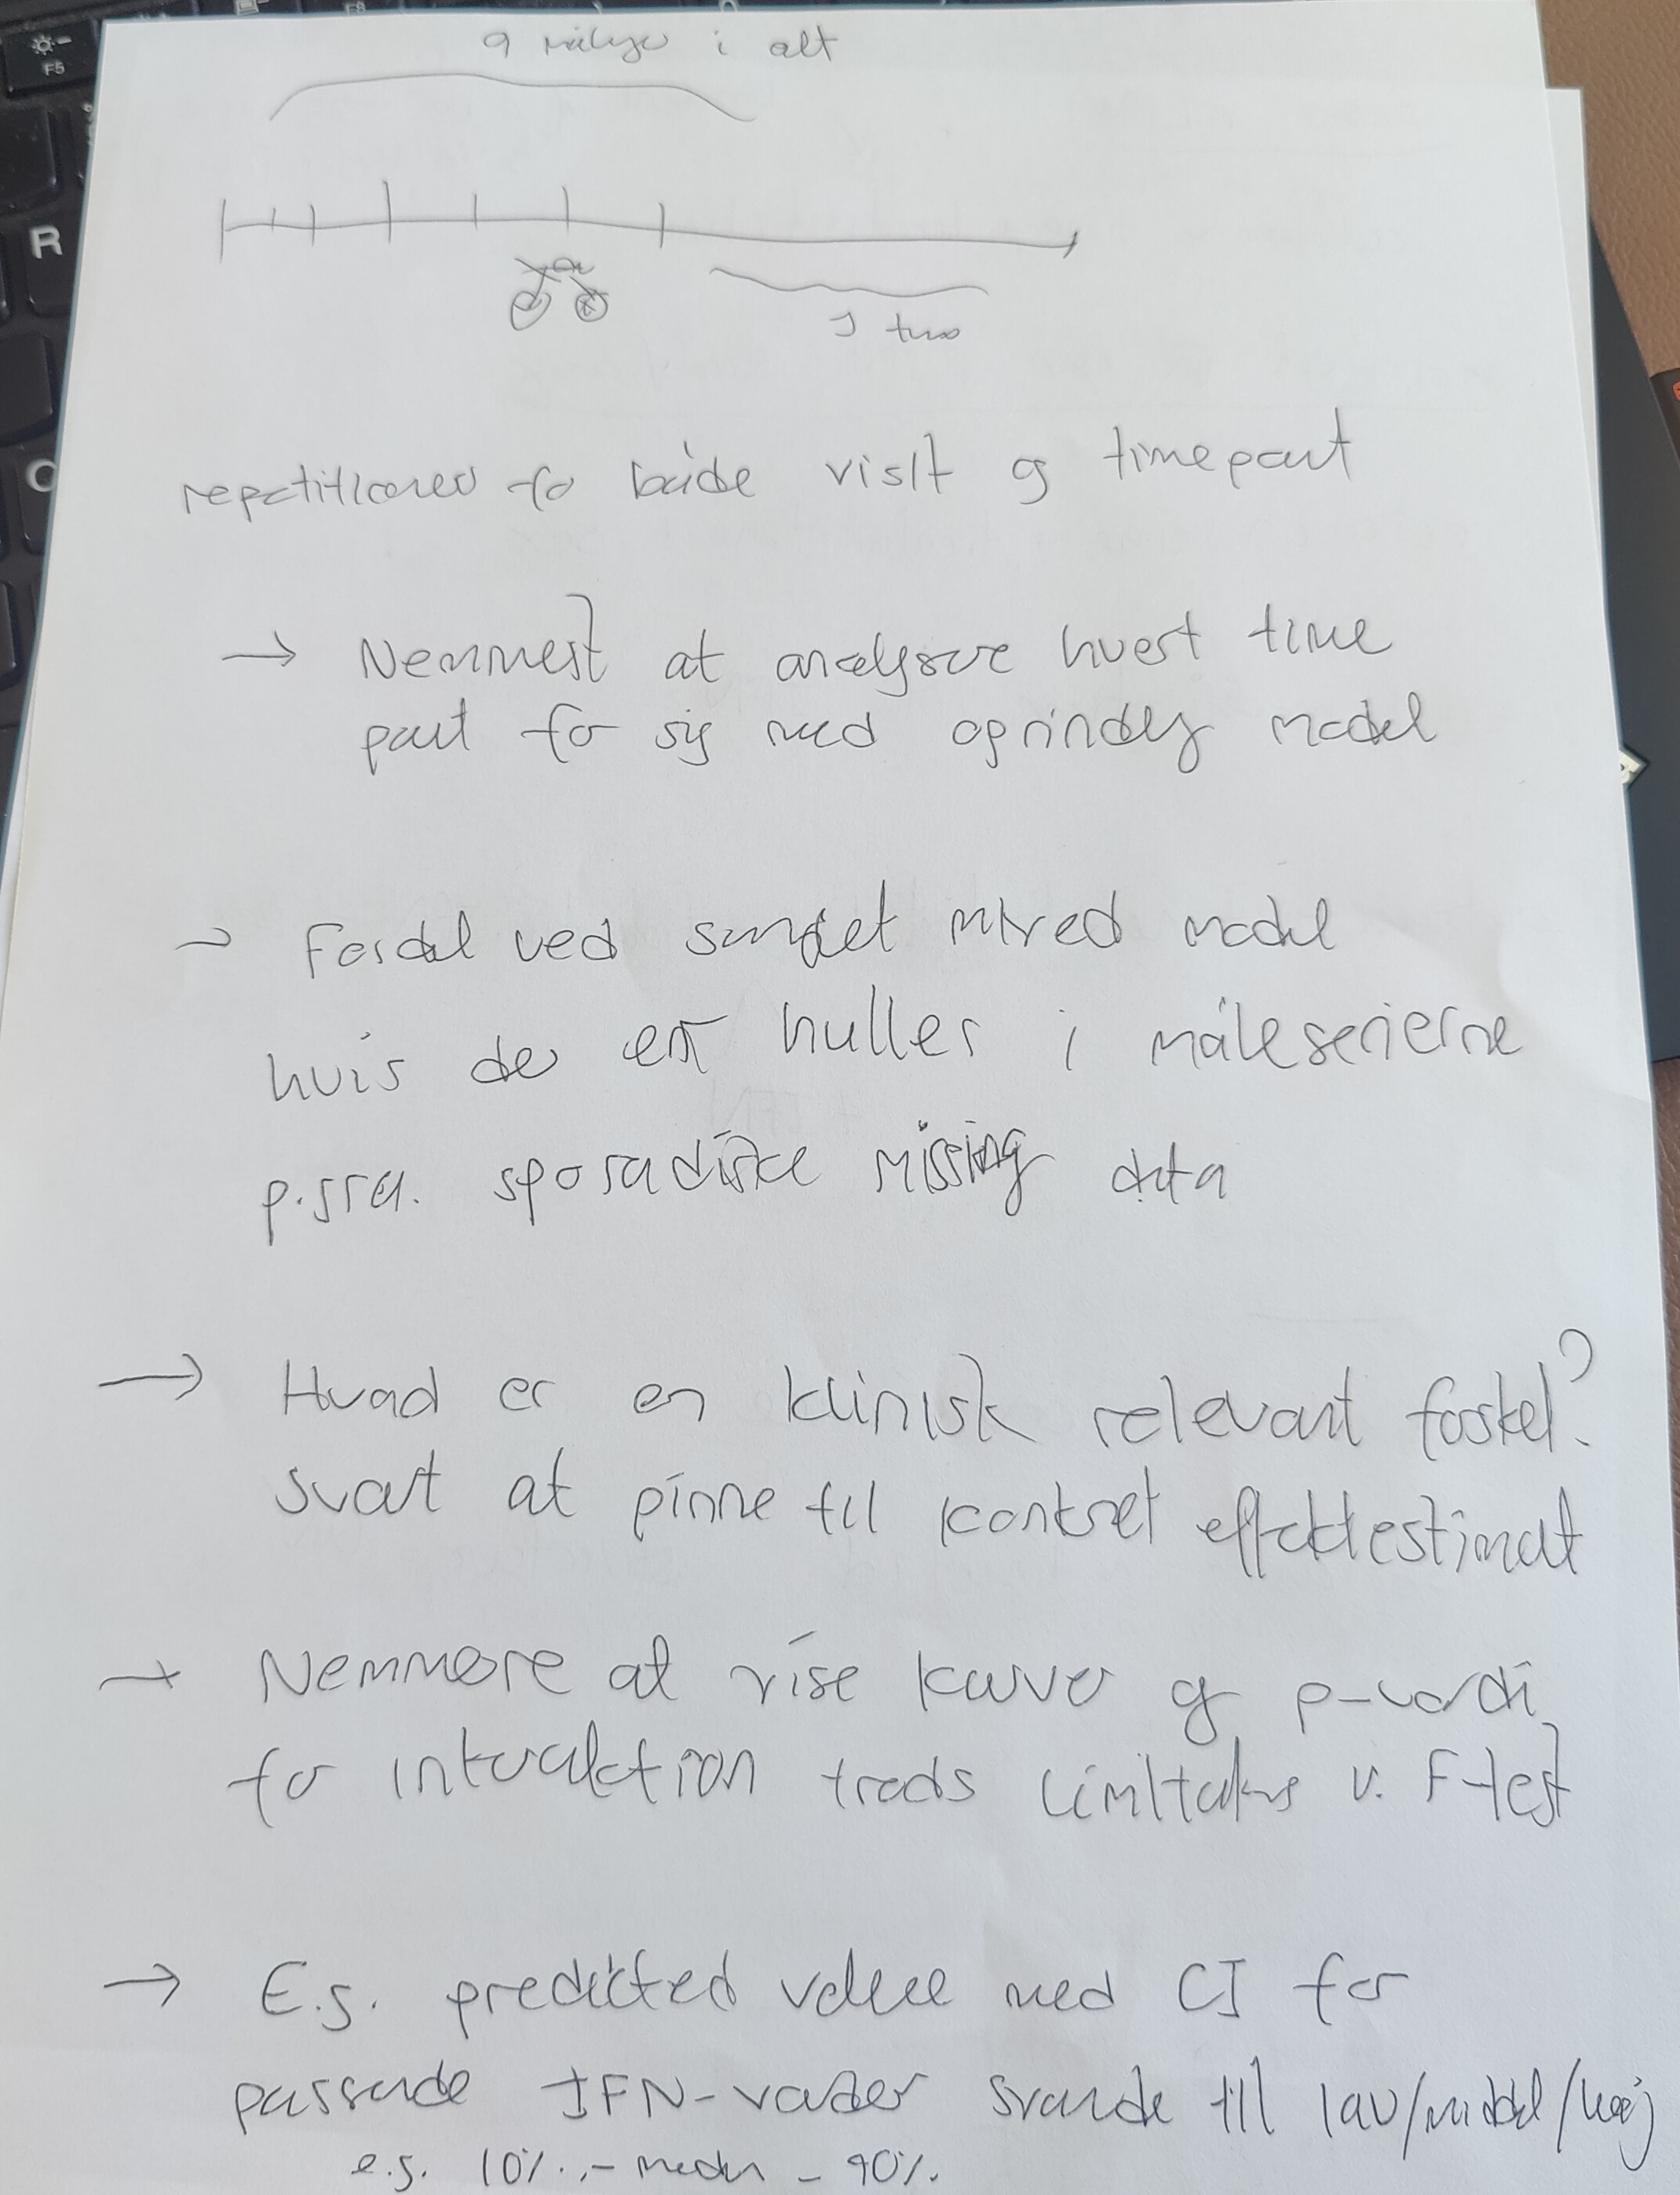 9 målinger i alt
repetitioner for både visit og timepoint
→ Nemmest at analysere hvert time
point for sig med oprindelig model
→ Fordel ved samlet mixed model
hvis der er huller i måleserierne
p.gra. sporadiske missing data
→ Hvad er en klinisk relevant forskel?
svært at pinne til konkret effektestimat
→ Nemmere at vise kurver og p-værdi
for interaktion trods limitations v. F-test
→ E.g. predicted value med CI for
passende IFN-værdier svarende til lav/middel/høj
e.g. 10% - median - 90%
F5
R